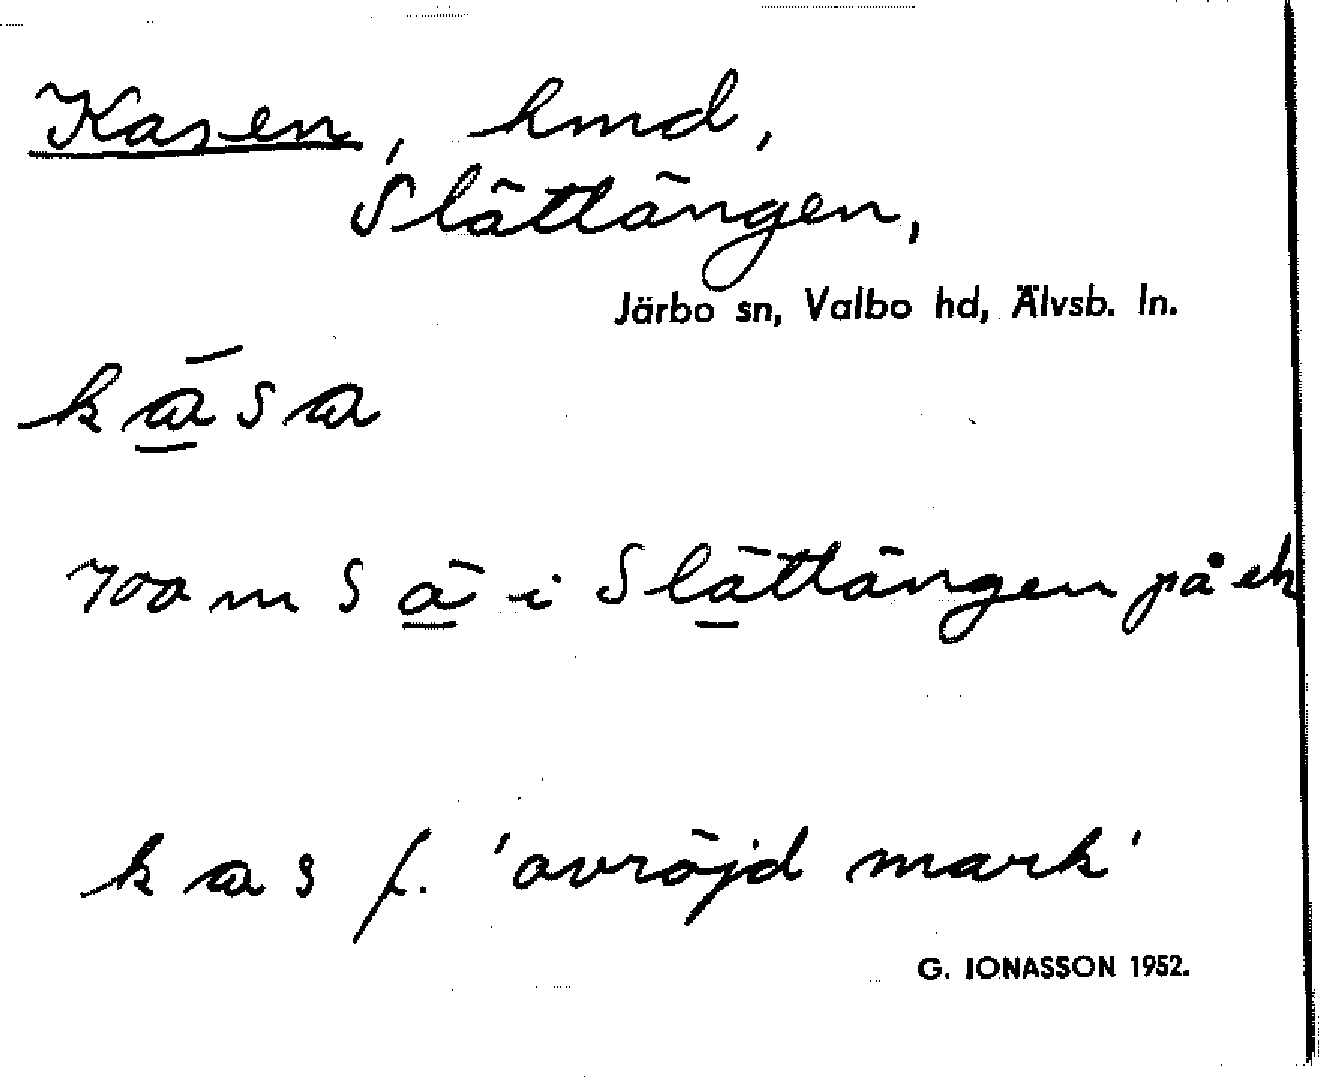 Kasen, hmd,
Slättängen,
Järbo sn, Valbo hd, Älvsb. ln.
kāsa
700 m S ä i Slättängen på ek
kas f. 'avröjd mark'
G. IONASSON 1952.